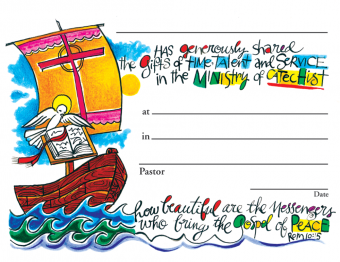 HAS generously shared
the gifts of TIME, TALENT and SERVICE
in the MINISTRY of CATECHIST
at
in
Pastor
Date
how beautiful are the Messengers
who bring the Gospel of PEACE
ROM 10:15